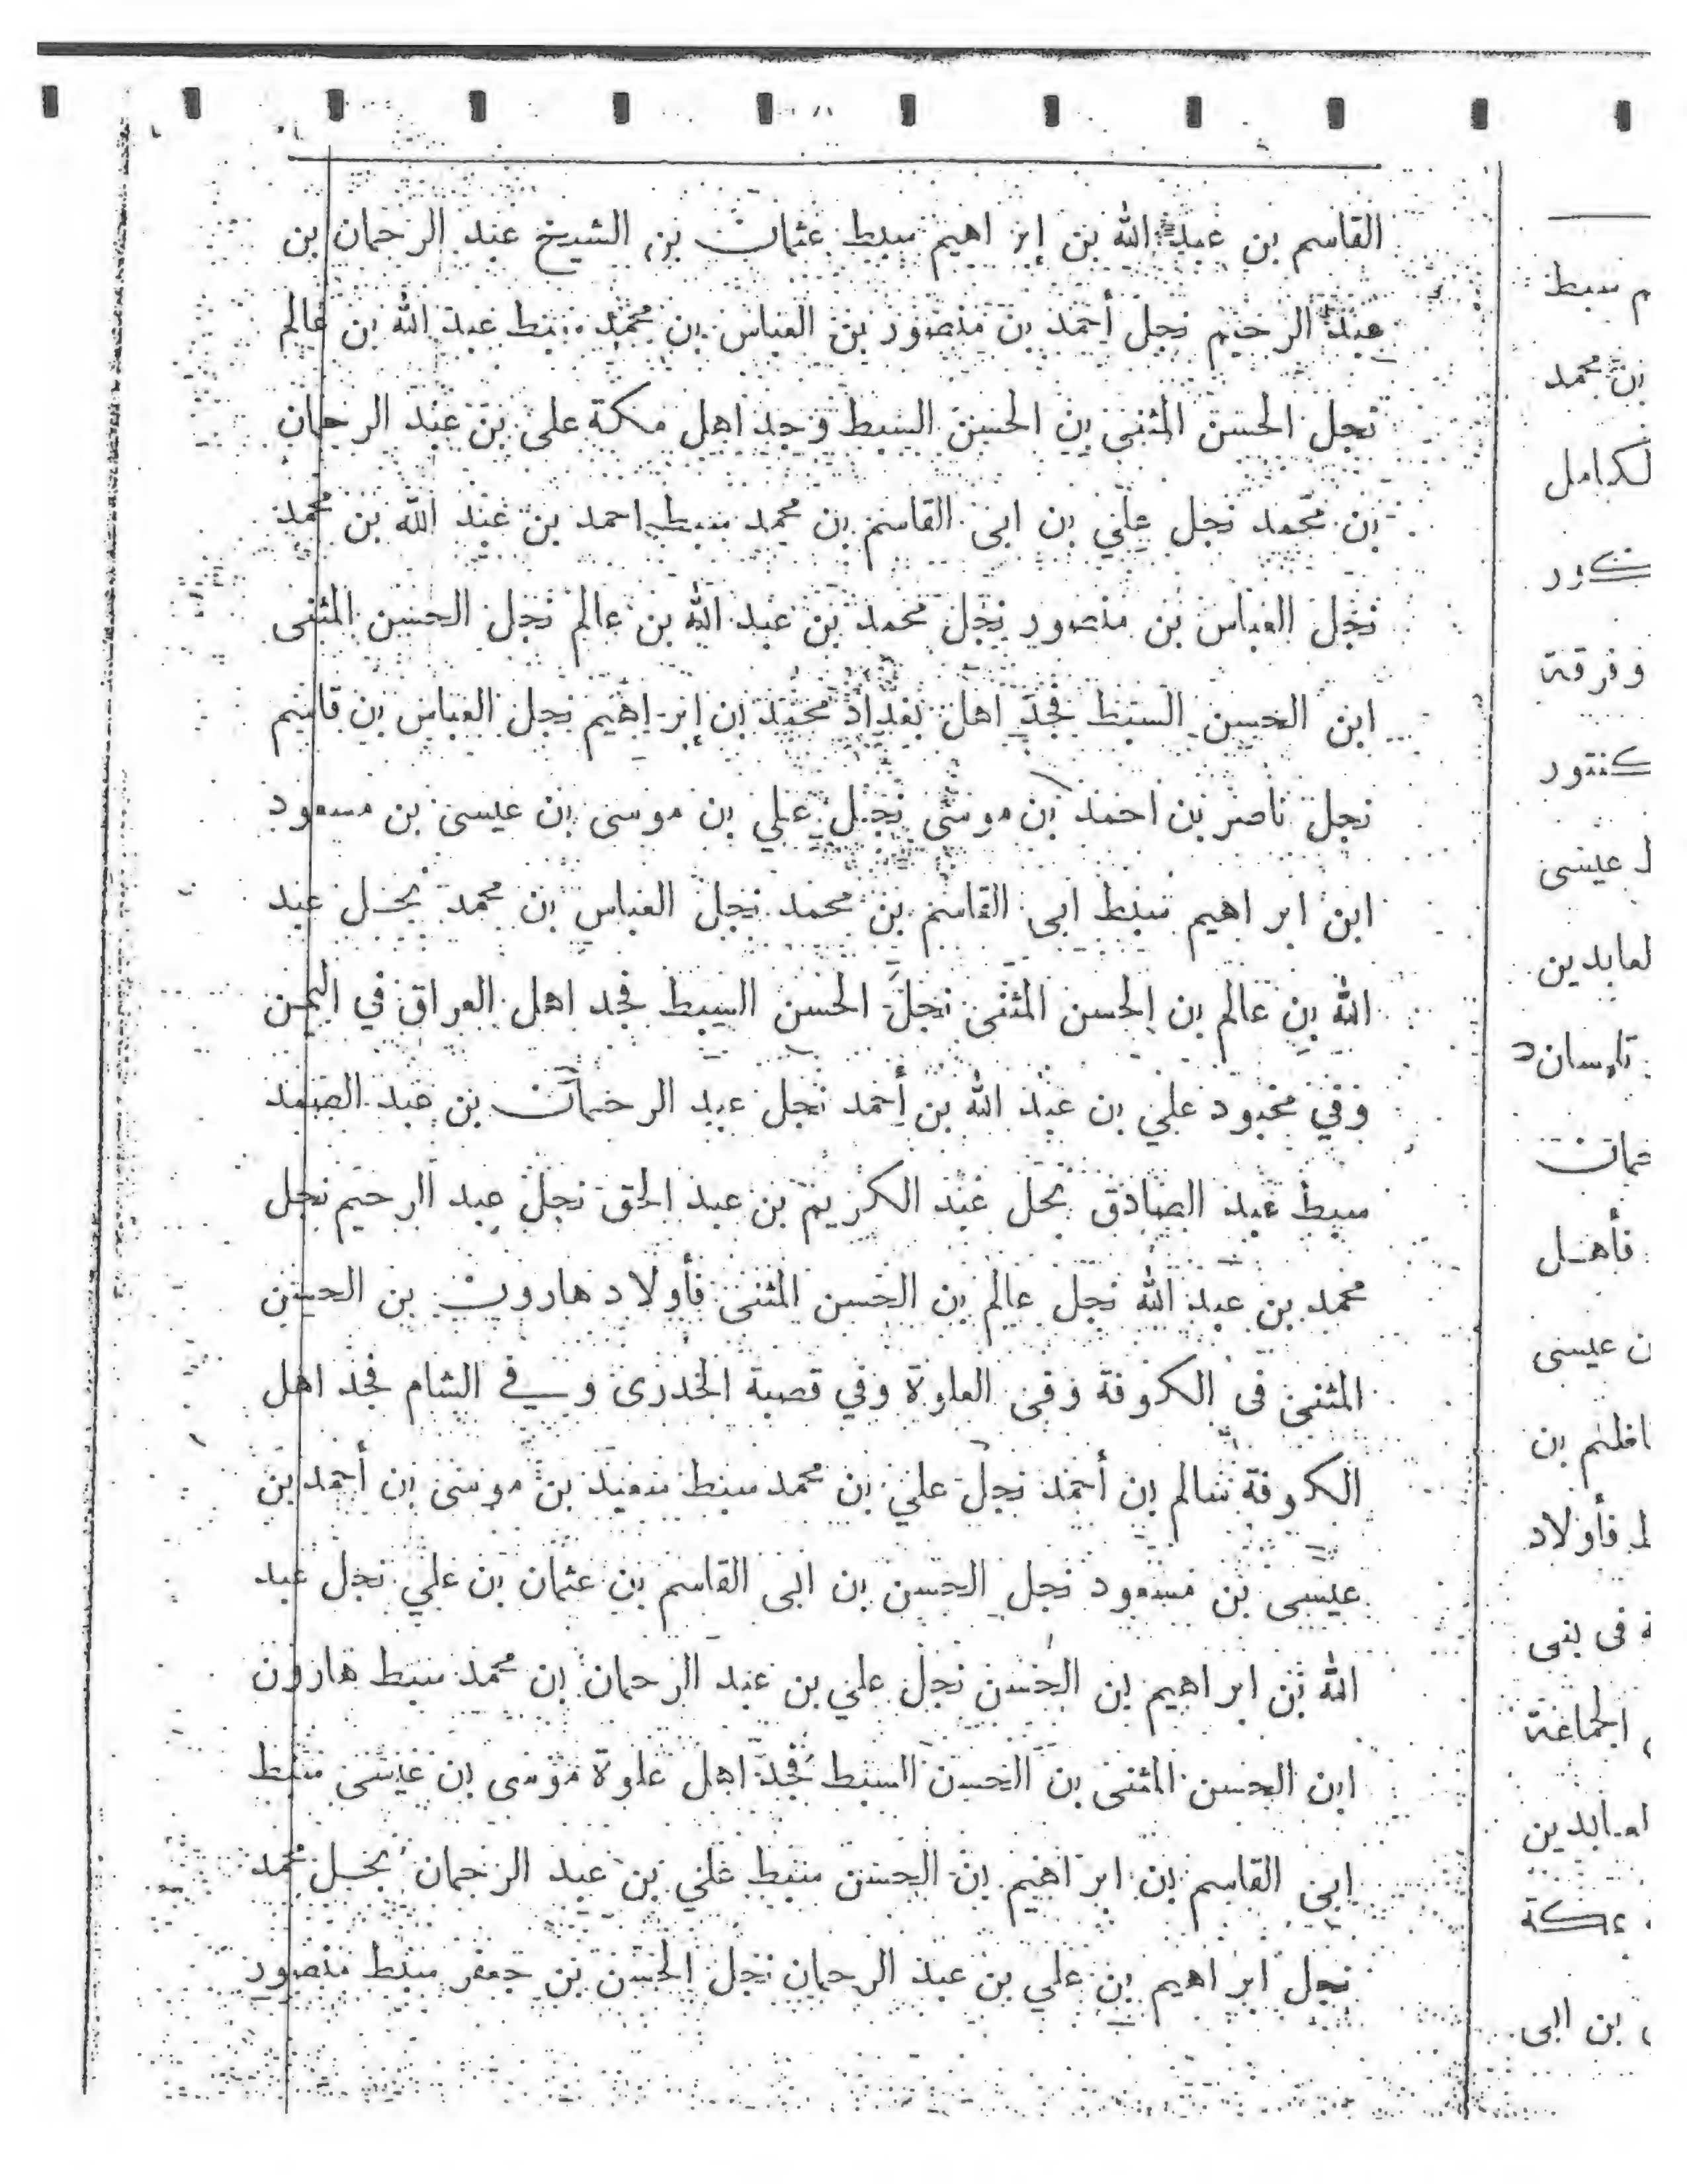 القاسم بن عبد الله بن إبراهيم سبط عثمان بن الشيخ عبد الرحمان بن
عبد الرحيم نجل أحمد بن منصور بن العباس بن محمد سبط عبد الله بن عالم
نجل الحسن المثنى بن الحسن السبط وجد اهل مكة علي بن عبد الرحمان
بن محمد نجل علي بن ابي القاسم بن محمد سبط احمد بن عبد الله بن محمد
نجل العباس بن منصور نجل محمد بن عبد الله بن عالم نجل الحسن المثنى
ابن الحسن السبط فجد اهل بغداد محمد بن إبراهيم نجل العباس بن قاسم
نجل ناصر بن احمد بن موسى نجل علي بن موسى بن عيسى بن مسعود
ابن ابراهيم سبط ابى القاسم بن محمد نجل العباس بن محمد نجل عبد
الله بن عالم بن الحسن المثنى نجل الحسن السبط فجد اهل العراق في اليمن
وفي محبود علي بن عبد الله بن أحمد نجل عبد الرحمان بن عبد الصمد
سبط عبد الصادق نجل عبد الكريم بن عبد الحق نجل عبد الرحيم نجل
محمد بن عبد الله نجل عالم بن الحسن المثنى فأولاد هارون بن الحسن
المثنى فى الكوفة وفى العلوة وفي قصبة الخدرى وفي الشام فجد اهل
الكوفة سالم بن أحمد نجل علي بن محمد سبط سعيد بن موسى بن أحمد بن
عيسى بن مسعود نجل الحسن بن ابى القاسم بن عثمان بن علي نجل عبد
الله بن ابراهيم بن الحسن نجل علي بن عبد الرحمان بن محمد سبط هارون
ابن الحسن المثنى بن الحسن السبط فجد اهل علوة موسى بن عيسى سبط
ابى القاسم بن ابراهيم بن الحسن سبط علي بن عبد الرحمان نجل محمد
نجل ابراهيم بن علي بن عبد الرحمان نجل الحسن بن جعفر سبط منصور
م سبط
بن محمد
لكامل
وفرقة
كنتور
ط عيسى
لعابدين
فأهل
ن عيسى
ط فأولاد
ة فى بنى
الجماعة
لعابدين
بن ابى